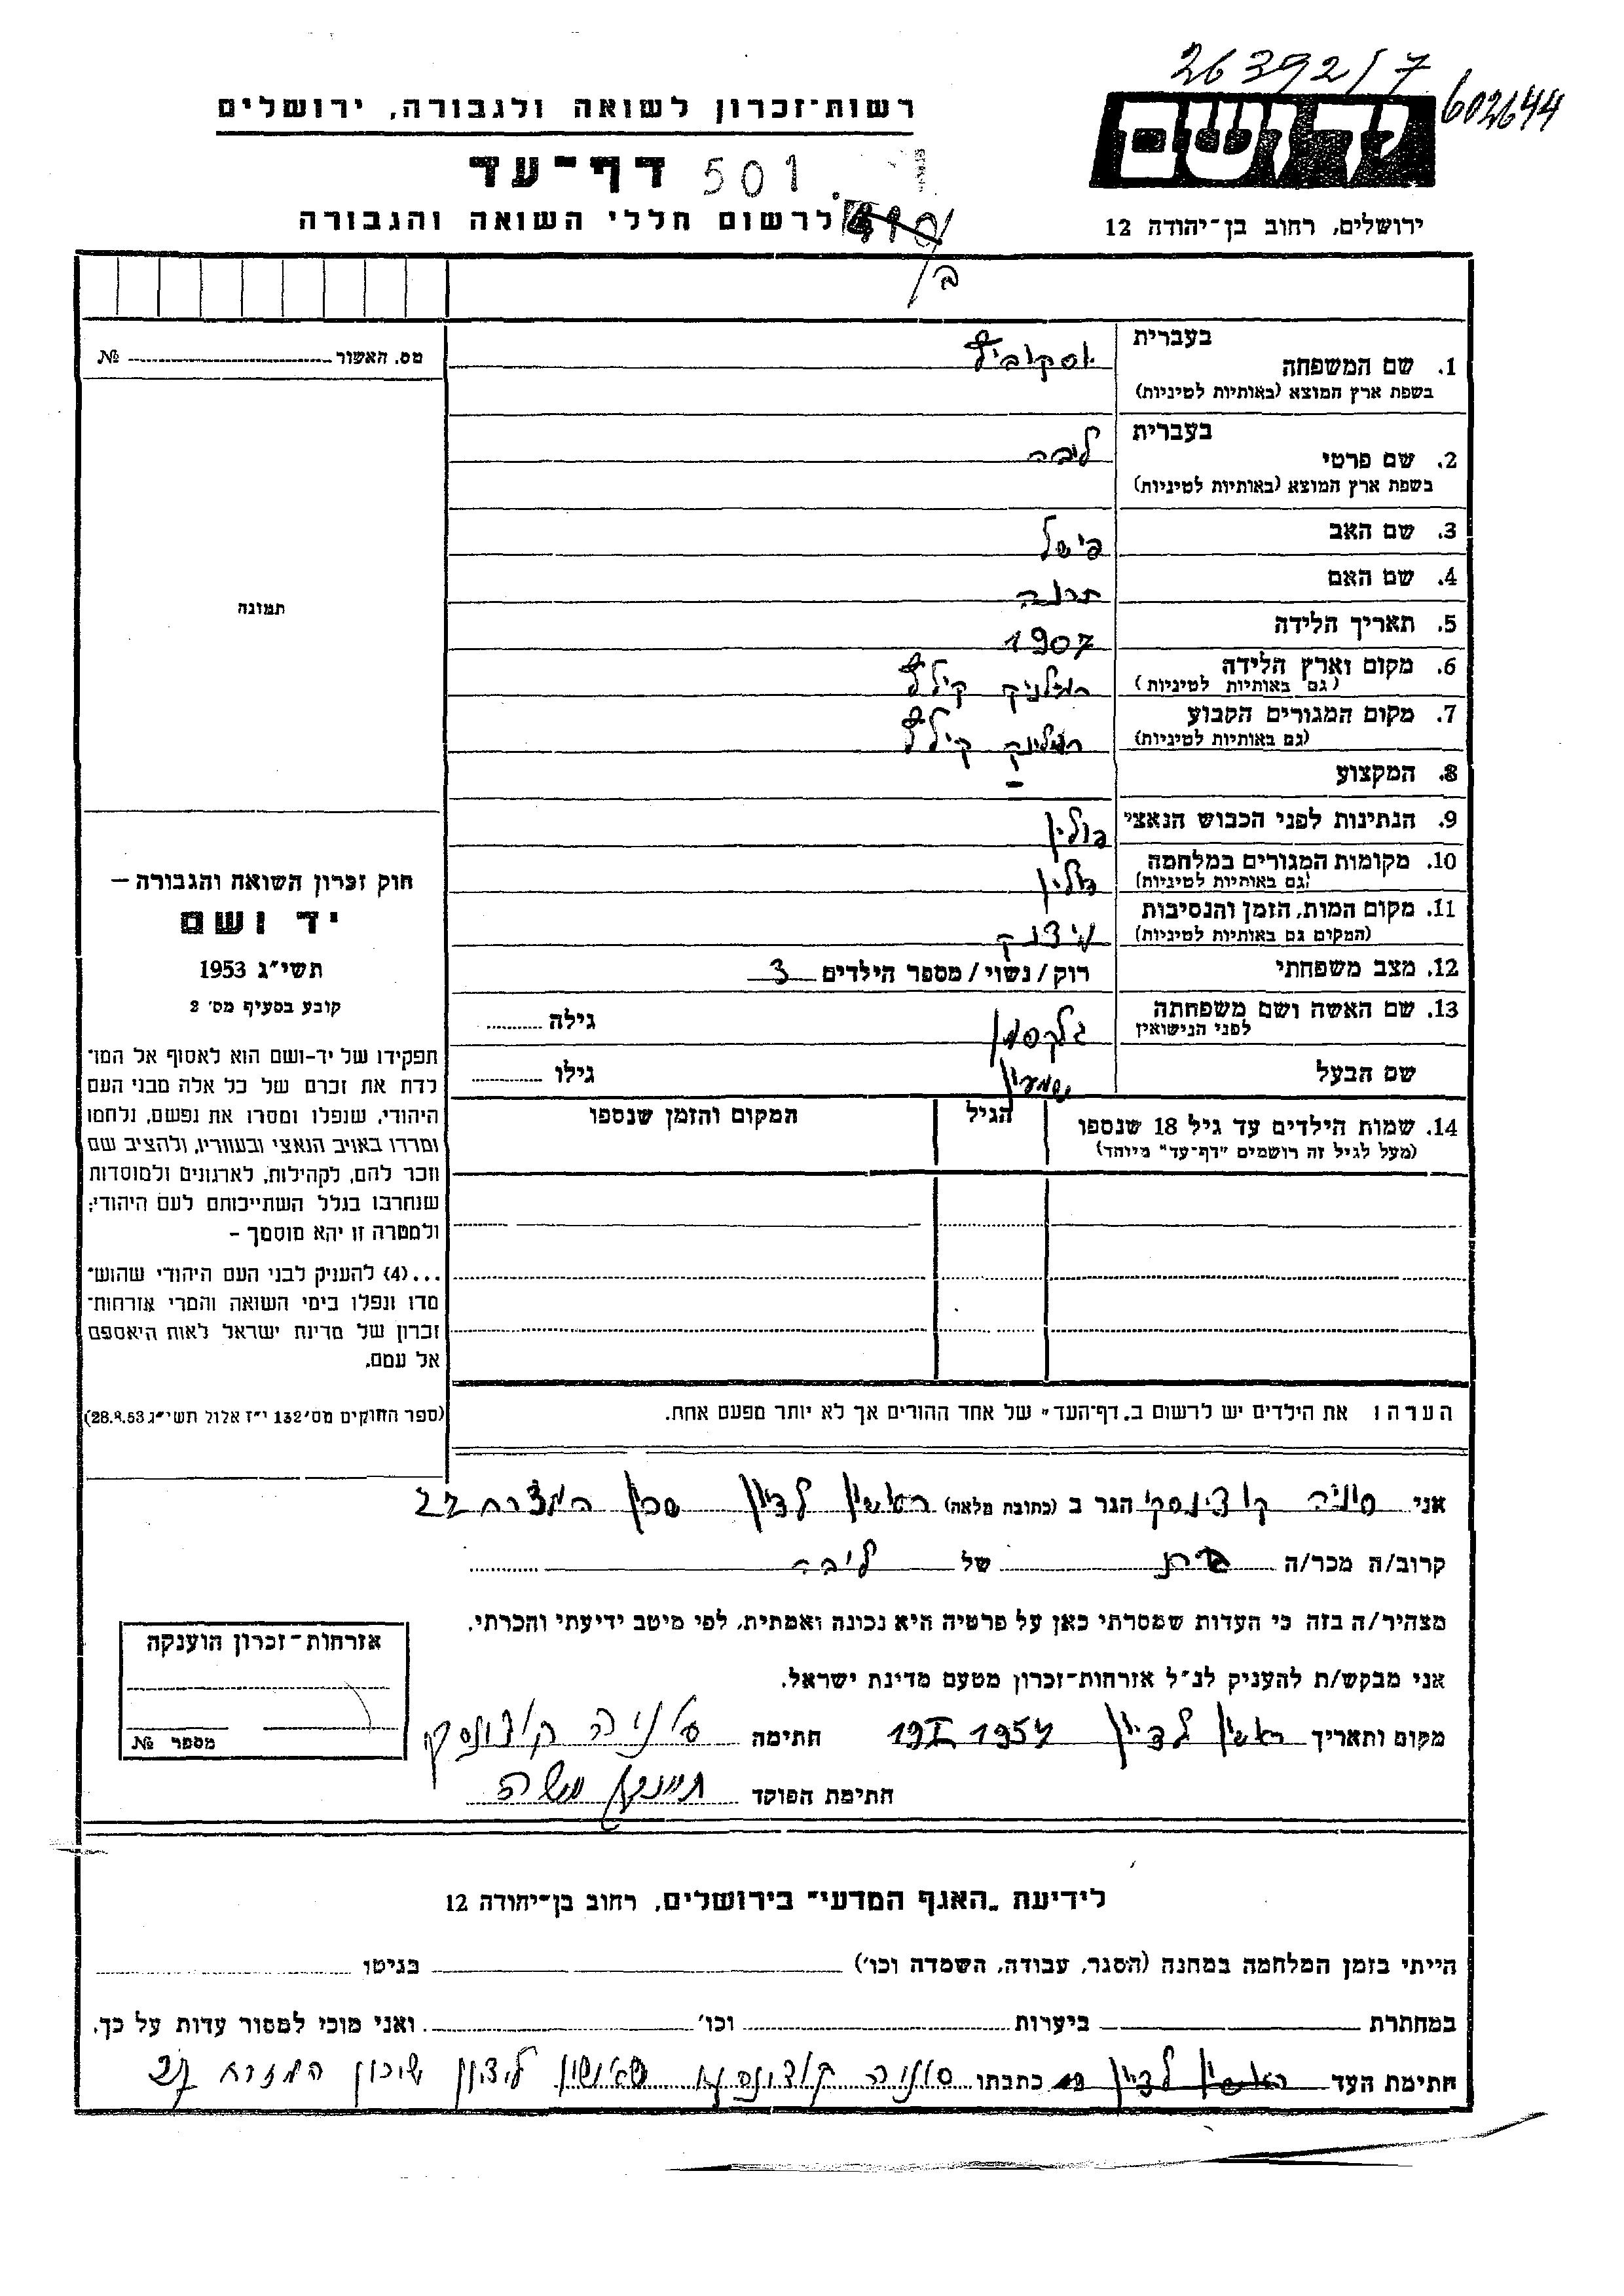 26392/7
602644
יד ושם
רשות-זכרון לשואה ולגבורה, ירושלים
דף-עד 501
לרשום חללי השואה והגבורה
ירושלים, רחוב בן-יהודה 12
ב/
מס. האשור № 
בעברית
1. שם המשפחה
בשפת ארץ המוצא (באותיות לטיניות)
בעברית
2. שם פרטי ליבה
בשפת ארץ המוצא (באותיות לטיניות)
3. שם האב פישל
4. שם האם
5. תאריך הלידה 1907
6. מקום וארץ הלידה
(גם באותיות לטיניות)
7. מקום המגורים הקבוע
(גם באותיות לטיניות)
8. המקצוע –
9. הנתינות לפני הכבוש הנאצי פולין
10. מקומות המגורים במלחמה פולין
(גם באותיות לטיניות)
11. מקום המות, הזמן והנסיבות
(המקום גם באותיות לטיניות)
12. מצב משפחתי רוק/נשוי/מספר הילדים 3
13. שם האשה ושם משפחתה
לפני הנישואין
גילה
שם הבעל שמעון גילו
14. שמות הילדים עד גיל 18 שנספו הגיל המקום והזמן שנספו
(מעל לגיל זה רושמים "דף-עד" מיוחד)
הערה: את הילדים יש לרשום ב„דף-העד" של אחד ההורים אך לא יותר מפעם אחת.
תמונה
חוק זכרון השואה והגבורה –
יד ושם
תשי"ג 1953
קובע בסעיף מס' 2
תפקידו של יד-ושם הוא לאסוף אל המו-
לדת את זכרם של כל אלה מבני העם
היהודי, שנפלו ומסרו את נפשם, נלחמו
ומרדו באויב הנאצי ובעוזריו, ולהציב שם
וזכר להם, לקהילות, לארגונים ולמוסדות
שנחרבו בגלל השתייכותם לעם היהודי;
ולמטרה זו יהא מוסמך –
...(4) להעניק לבני העם היהודי שהוש-
מדו ונפלו בימי השואה והמרי אזרחות-
זכרון של מדינת ישראל לאות היאספם
אל עמם.
(ספר החוקים מס' 132 י"ז אלול תשי"ג 28.8.53)
אני סוניה קודינסקי הגר ב (כתובת מלאה) ראשון לציון שכון המזרח 27
קרוב/ה מכר/ה בת של ליבה
מצהיר/ה בזה כי העדות שמסרתי כאן על פרטיה היא נכונה ואמתית, לפי מיטב ידיעתי והכרתי.
אני מבקש/ת להעניק לנ"ל אזרחות-זכרון מטעם מדינת ישראל.
מקום ותאריך ראשון לציון 19 I 1957 חתימה סוניה
חתימת הפוקד משה
אזרחות-זכרון הוענקה
מספר №
לידיעת „האגף המדעי" בירושלים, רחוב בן-יהודה 12
הייתי בזמן המלחמה במחנה (הסגר, עבודה, השמדה וכו') בגיטו
במחתרת ביערות וכו' ואני מוכן למסור עדות על כך.
חתימת העד ראשון לציון כתבתו סוניה ראשון לציון שיכון המזרח 27